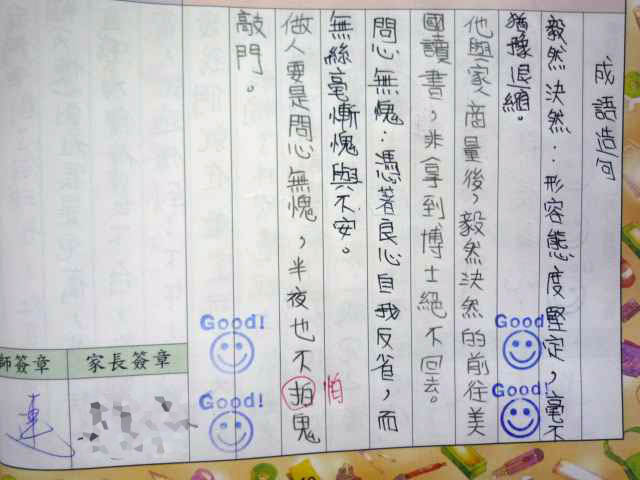 成語造句
毅然決然：形容態度堅定，毫不
猶豫退縮。
他與家人商量後，毅然決然的前往美
國讀書，非拿到博士絕不回去。
問心無愧：憑著良心自我反省，而
無絲毫慚愧與不安。
做人要是問心無愧，半夜也不拍鬼
怕
敲門。
Good!
Good!
Good!
Good!
家長簽章
師簽章
連